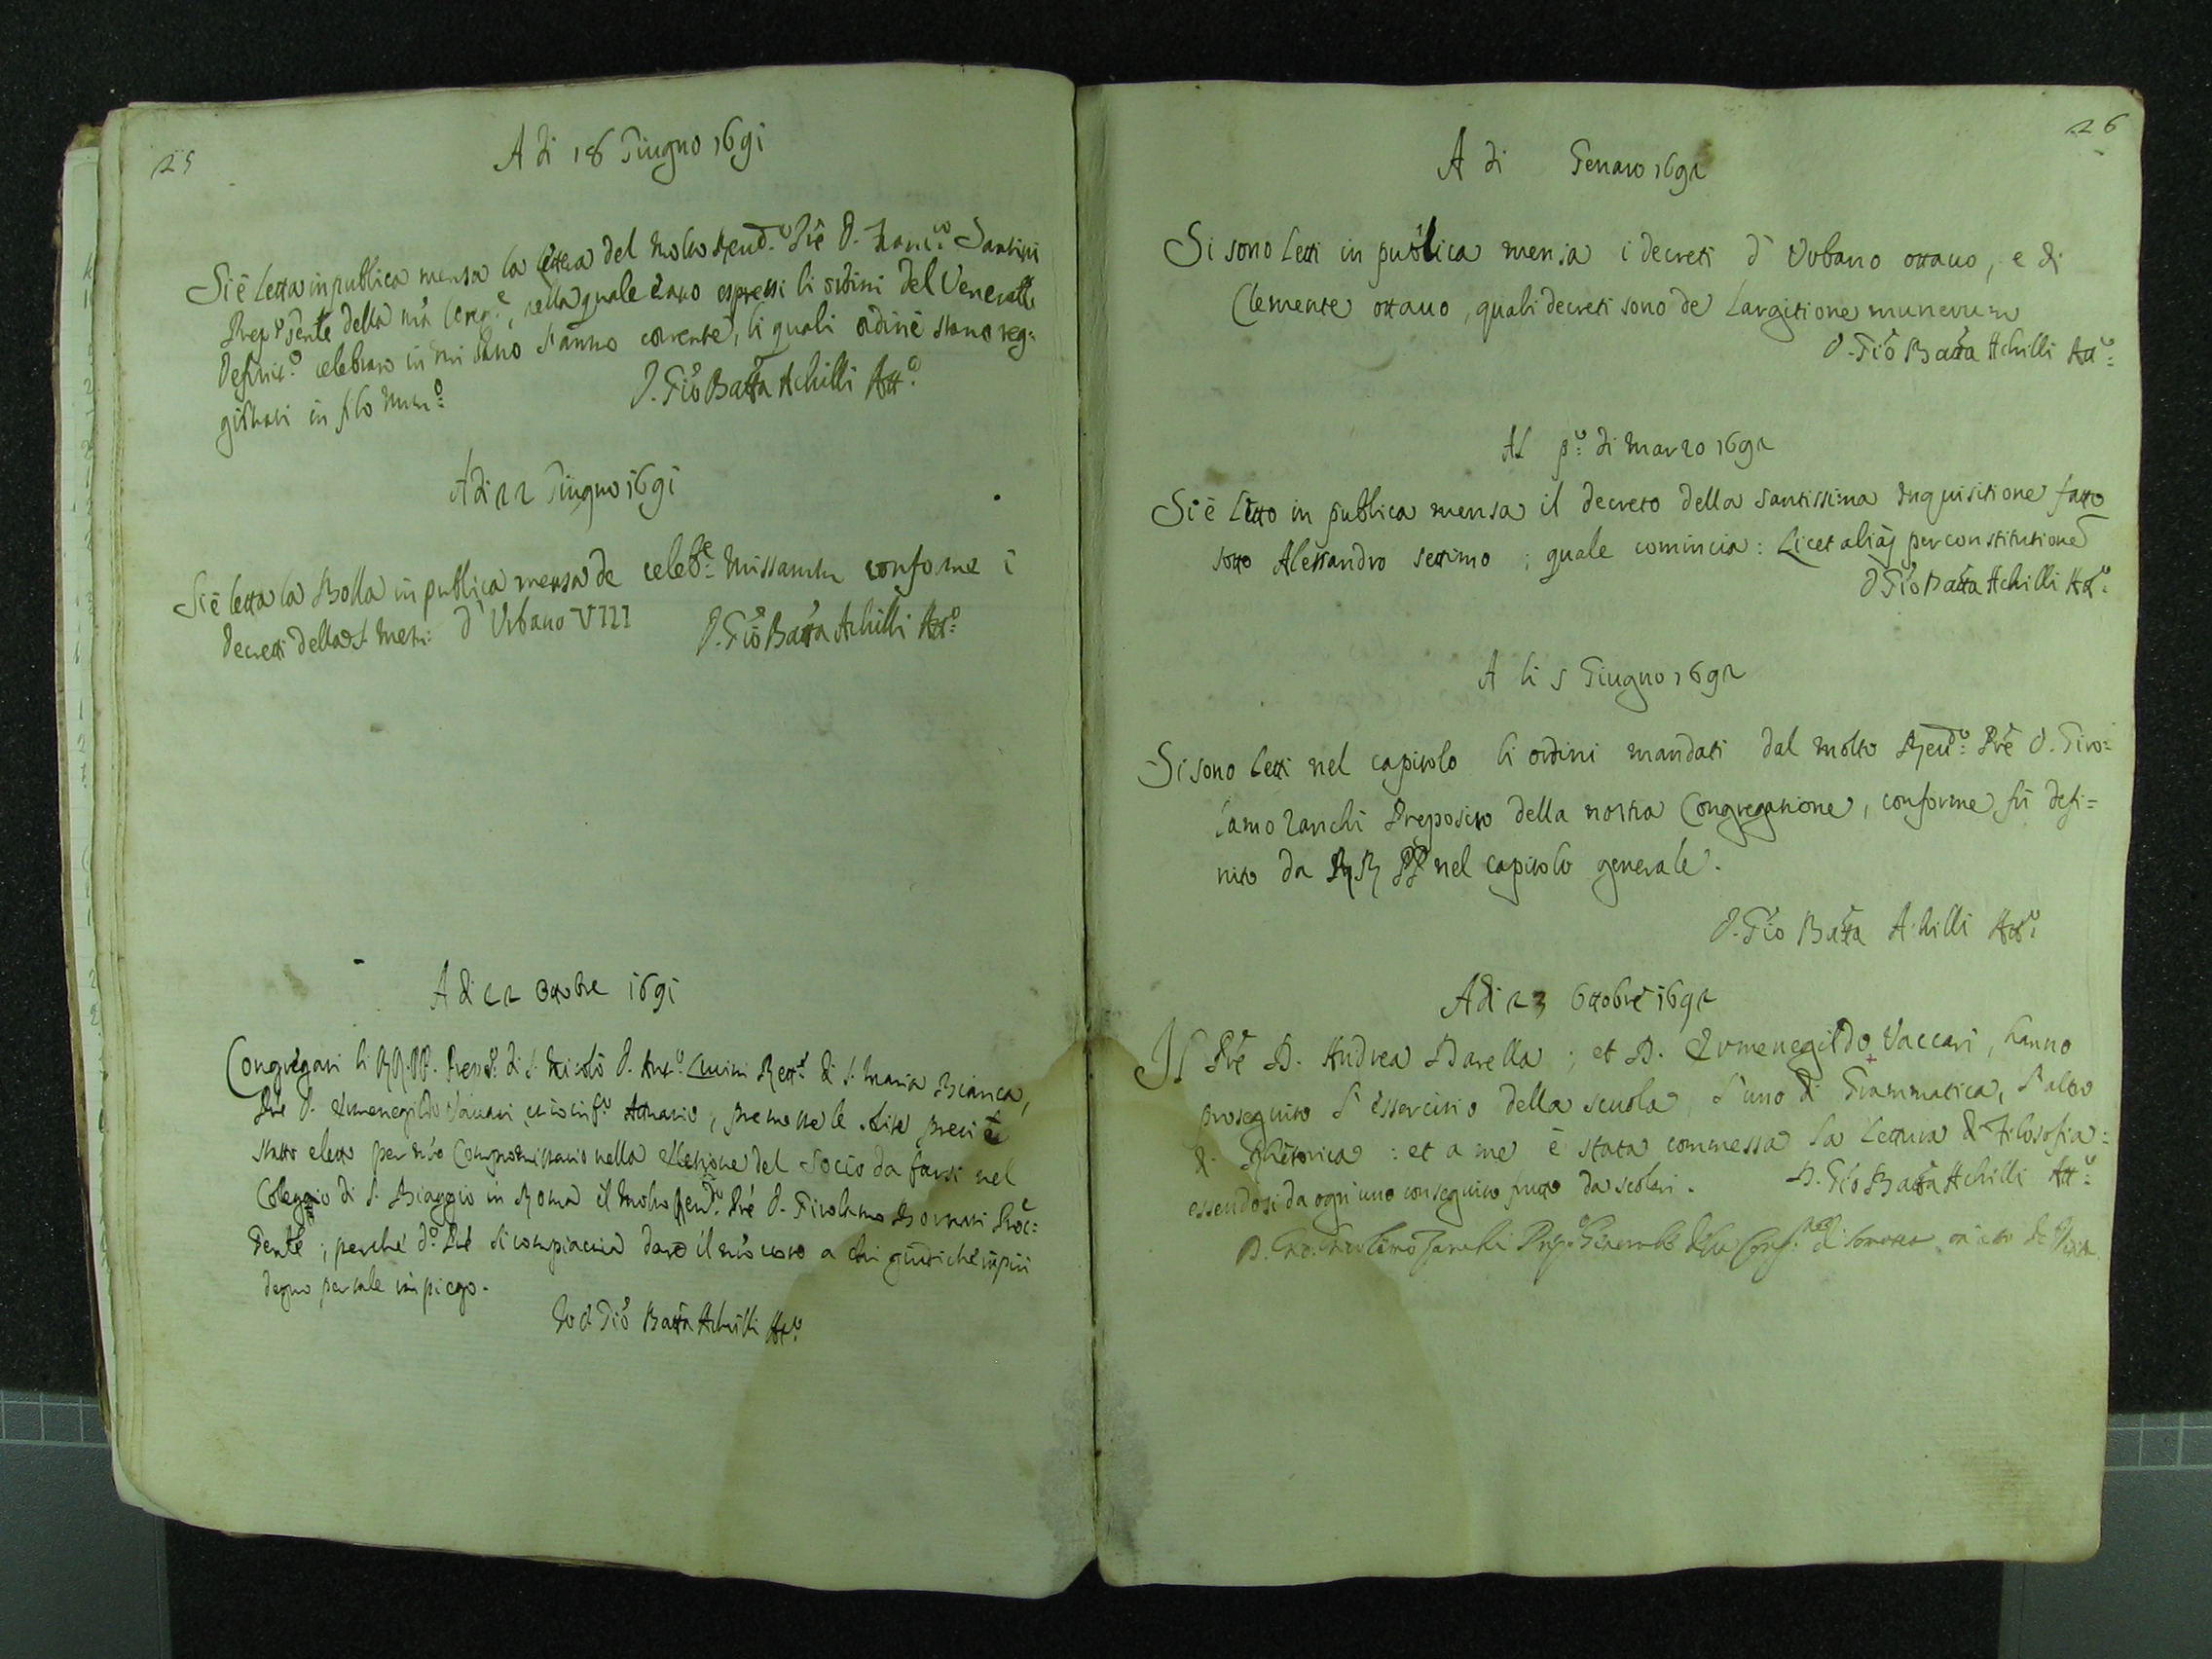 25
A di 18 Giugno 1691
Si è letta in publica mensa la lettera del Molto Reud.º Prê D. Franc.º Santini
Prep.º Gente della nrã Congr.e, nella quale erano espressi li ordini del Venerabile
Definit.º celebrato in Milano l'anno corrente, li quali ordini è stano reg=
gistrati in filo Num.º
D. Gio Batta Achilli Att.º
Adi 22 Giugno 1691
Si è letta la Bolla in publica mensa de celeb.e Missarum conforme i
decreti della S. Mem: d'Urbano VIII
D. Gio Batta Achilli Att.º
A di 22 Ottobre 1691
Congregati li RR.PP. di S. Nicolò D. Ant.º Rett.e di S. Maria Bianca,
Prê D. Ermenegildo Vaccari, et io inf.º Attuario, premesse le solite preci è
stato eletto per nrõ Compromissario nella elletione del Socio da farsi nel
Coleggio di S. Biaggio in Roma il Molto Reud.º Prê D. Girolamo Bornati Proc:
Gente; perche d.º Prê si compiacia dare il nrõ voto a chi giudicherà più
degno per tale impiego.
Io D Gio Batta Achilli Att.º
26
A di Genaro 1692
Si sono letti in publica mensa i decreti d'Vrbano ottauo, e di
Clemente ottauo, quali decreti sono de Largitione munerum
D. Gio Batta Achilli Att.º
Al p.º di Marzo 1692
Si è letto in publica mensa il decreto della Santissima Inquisitione fatto
sotto Alessandro settimo; quale comincia: Licet alias per constitutione
D Gio Batta Achilli Att.º
A li 5 Giugno 1692
Si sono letti nel capitolo li ordini mandati dal molto Reud.º Prê D. Giro=
lamo Zanchi Preposito della nostra Congregatione, conforme fù defi=
nito da RR PP nel capitolo generale.
D. Gio Batta Achilli Att.º
Adi 23 Ottobre 1692
Il Prê D. Andrea Barella; et D. Ermenegildo Vaccari, hanno
proseguito l'essercitio della scuola, l'uno di Grammatica, l'altro
di Rhetorica: et a me è stata commessa la lettura di Filosofia:
essendosi da ogn'uno conseguito frutto da scolari. D. Gio Batta Achilli Att.º
D. Girolamo Zanchi Prep.º Generale della Cong.ne di Somasca in atto di Visita